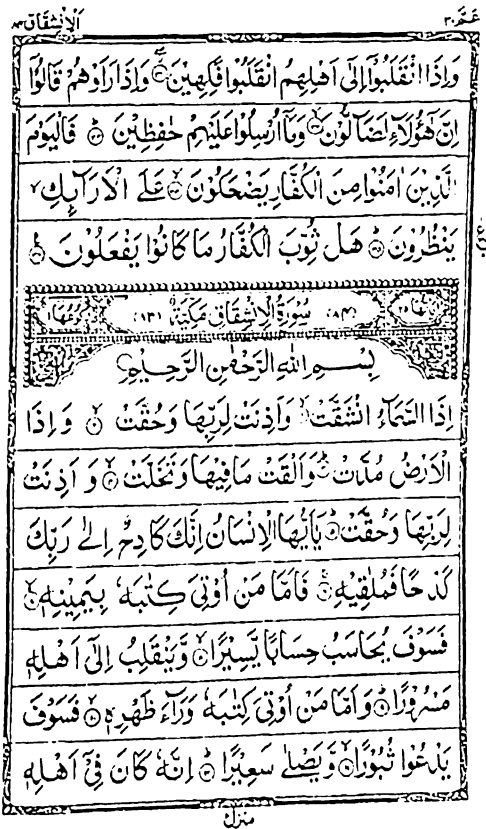 عَمَّ ٣٠
اَلْاِنْشِقَاق ٨٤
وَاِذَا انْقَلَبُوْۤا اِلٰۤى اَهْلِهِمُ انْقَلَبُوْا فَكِهِيْنَ ۝٣١ وَاِذَا رَاَوْهُمْ قَالُوْۤا
اِنَّ هٰۤؤُلَآءِ لَضَآلُّوْنَ ۝٣٢ وَمَاۤ اُرْسِلُوْا عَلَيْهِمْ حٰفِظِيْنَ ۝٣٣ فَالْيَوْمَ
الَّذِيْنَ اٰمَنُوْا مِنَ الْكُفَّارِ يَضْحَكُوْنَ ۝٣٤ عَلَى الْاَرَآئِكِ
يَنْظُرُوْنَ ۝٣٥ هَلْ ثُوِّبَ الْكُفَّارُ مَا كَانُوْا يَفْعَلُوْنَ ۝٣٦
(٨٤) سُوْرَةُ الْاِنْشِقَاقِ مَكِّيَّةٌ
بِسْمِ اللّٰهِ الرَّحْمٰنِ الرَّحِيْمِ
اِذَا السَّمَآءُ انْشَقَّتْ ۝١ وَاَذِنَتْ لِرَبِّهَا وَحُقَّتْ ۝٢ وَاِذَا
الْاَرْضُ مُدَّتْ ۝٣ وَاَلْقَتْ مَا فِيْهَا وَتَخَلَّتْ ۝٤ وَاَذِنَتْ
لِرَبِّهَا وَحُقَّتْ ۝٥ يٰۤاَيُّهَا الْاِنْسَانُ اِنَّكَ كَادِحٌ اِلٰى رَبِّكَ
كَدْحًا فَمُلٰقِيْهِ ۝٦ فَاَمَّا مَنْ اُوْتِيَ كِتٰبَهٗ بِيَمِيْنِهٖ ۝٧
فَسَوْفَ يُحَاسَبُ حِسَابًا يَّسِيْرًا ۝٨ وَّيَنْقَلِبُ اِلٰۤى اَهْلِهٖ
مَسْرُوْرًا ۝٩ وَاَمَّا مَنْ اُوْتِيَ كِتٰبَهٗ وَرَآءَ ظَهْرِهٖ ۝١٠ فَسَوْفَ
يَدْعُوْا ثُبُوْرًا ۝١١ وَّيَصْلٰى سَعِيْرًا ۝١٢ اِنَّهٗ كَانَ فِيْۤ اَهْلِهٖ
منزل